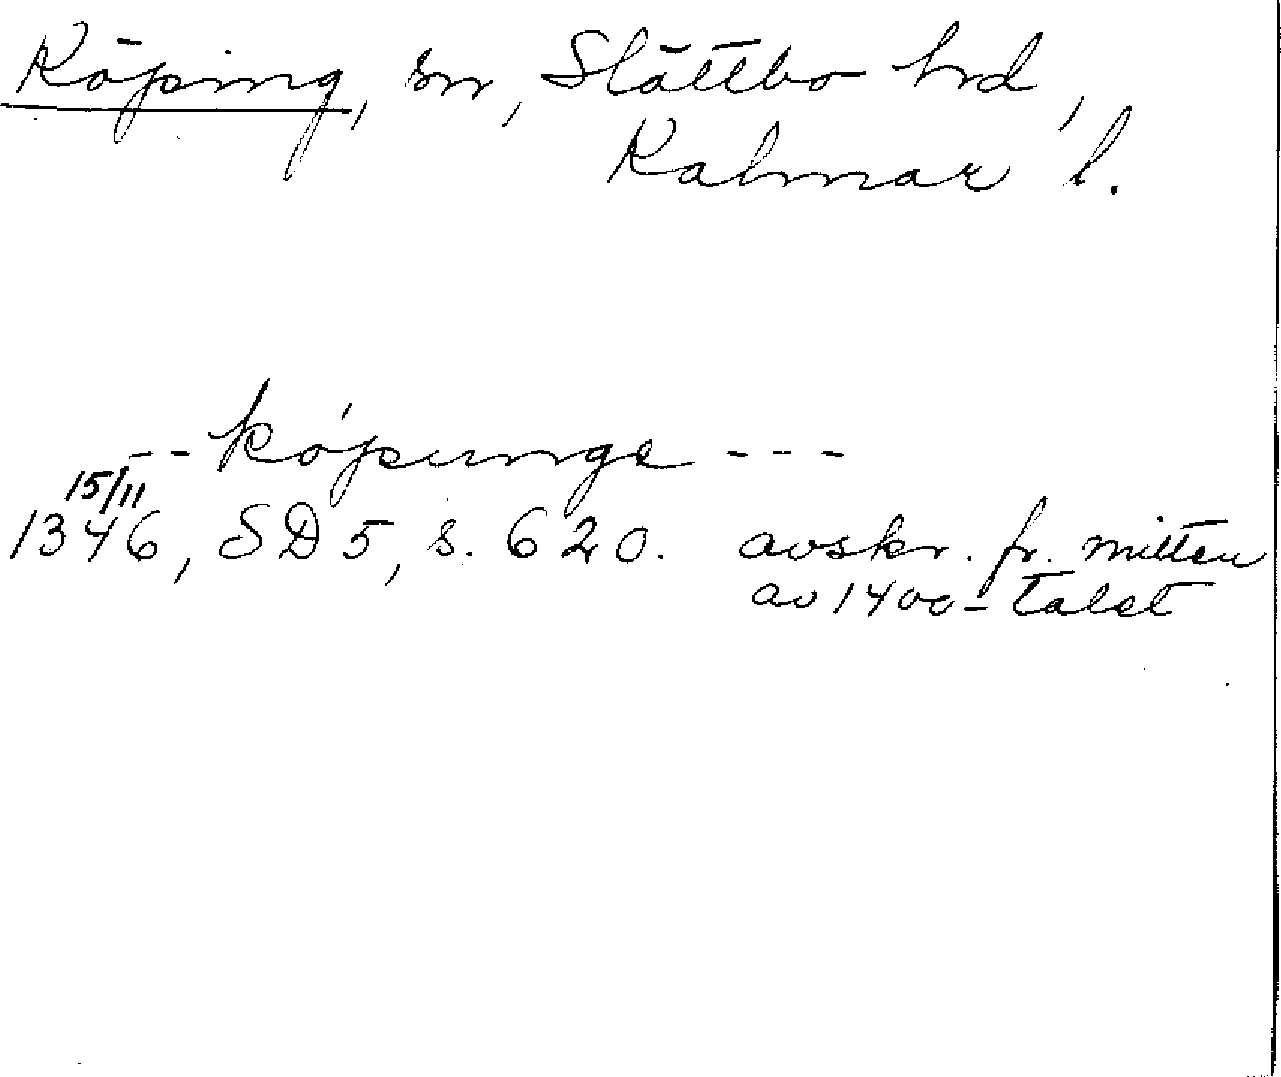 Köping, sn, Slättbo hrd,
Kalmar l.
-- köpunge ---
15/11
1346, SD 5, s. 620. avskr. fr. mitten
av 1400-talet